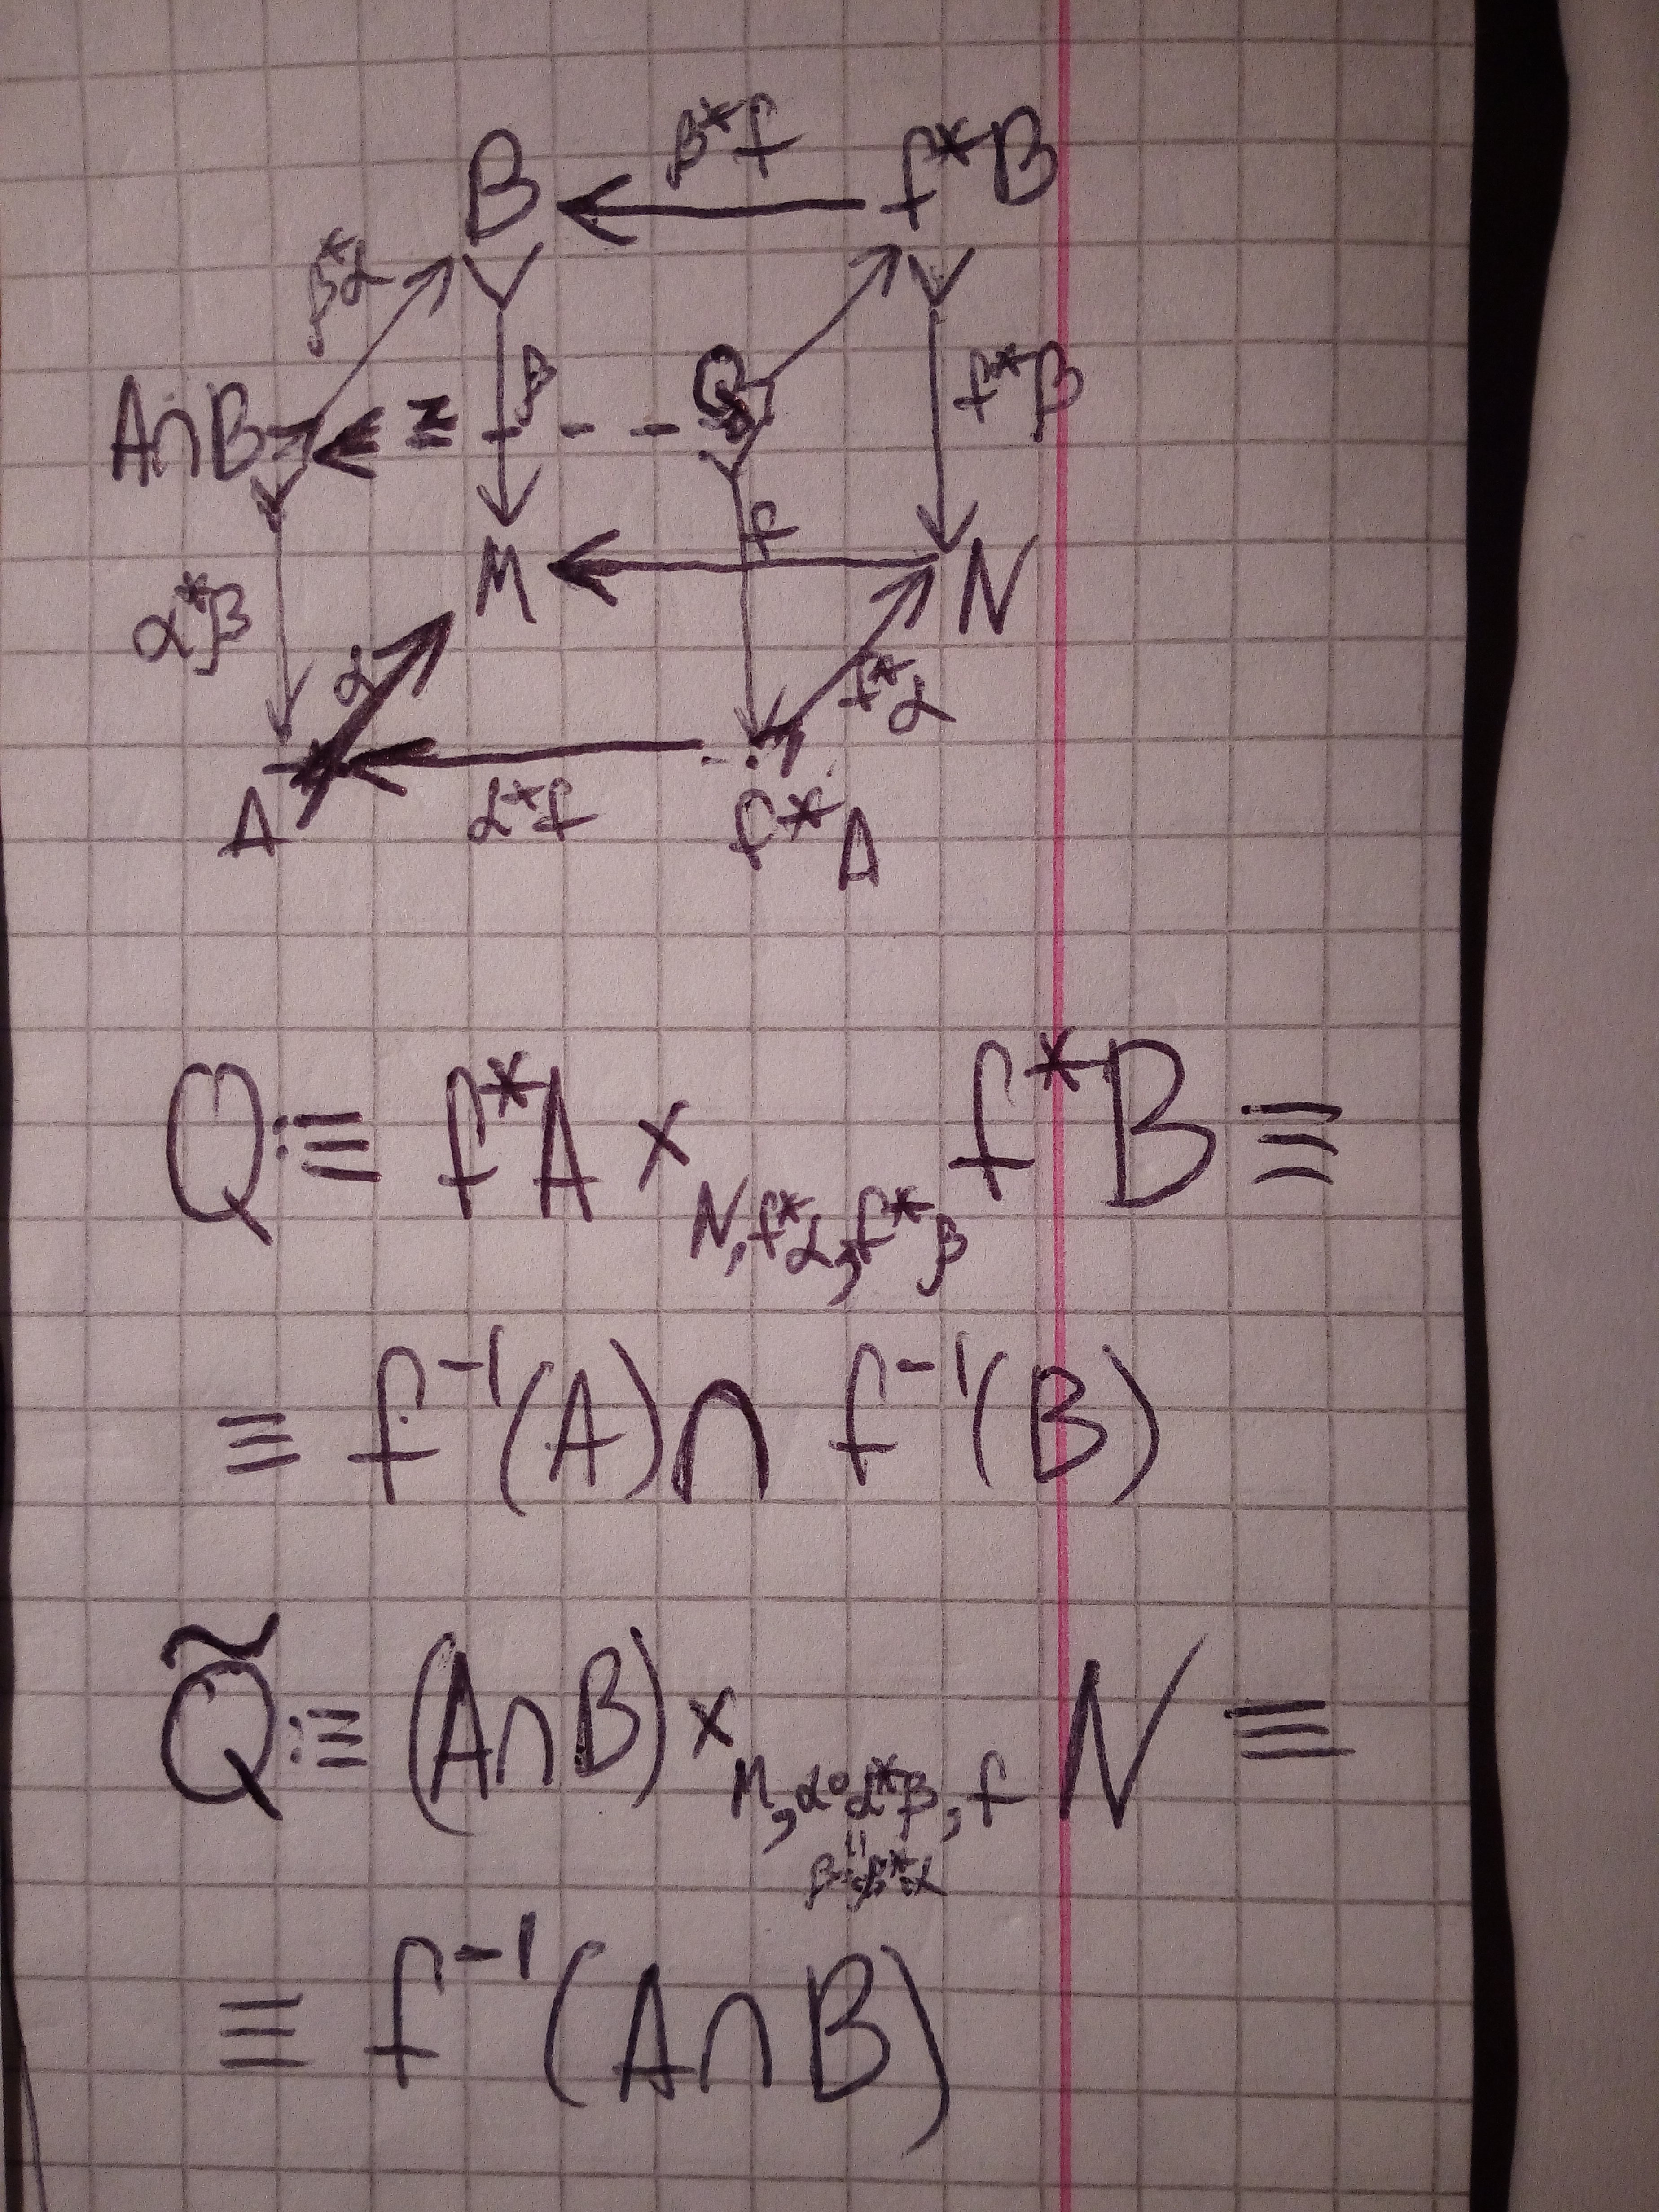 β*f
B f*B
β*α
β Q f*β
A∩B
f
M N
α*β
α f*α
A α*f f*A
Q :≡ f*A ×_{N, f*α, f*β} f*B ≡
≡ f⁻¹(A) ∩ f⁻¹(B)
Q̃ :≡ (A∩B) ×_{M, α∘α*β, f} N ≡
||
β∘β*α
≡ f⁻¹(A∩B)